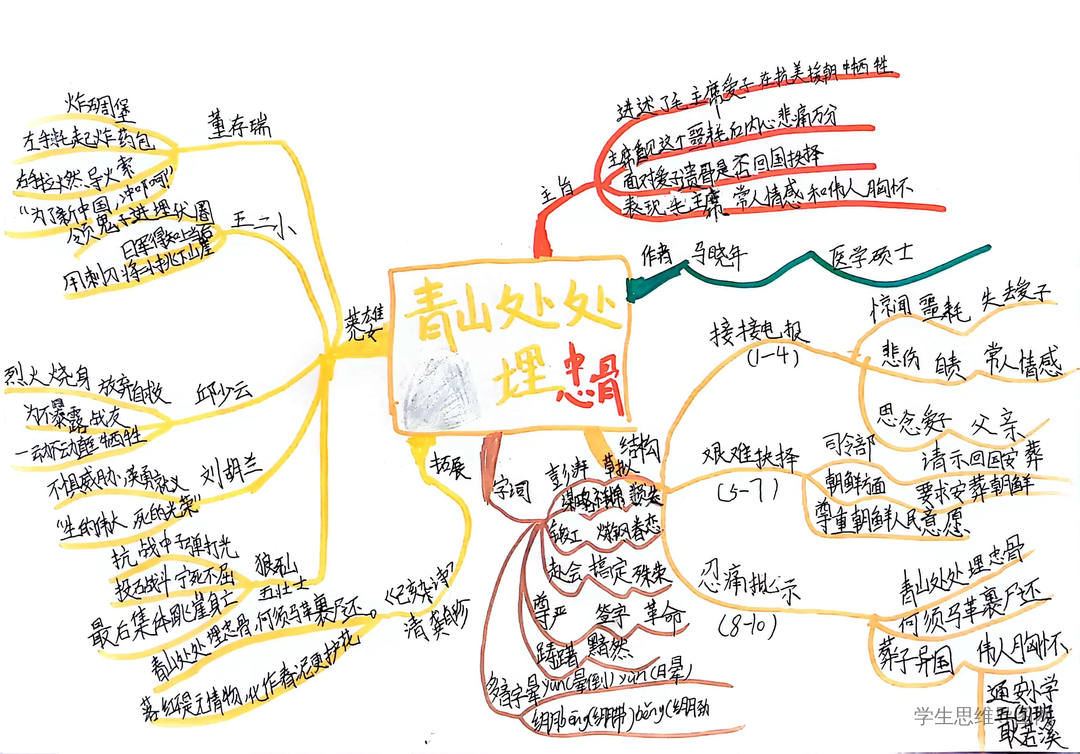 青山处处
埋忠骨
主旨
进述了毛主席爱子在抗美援朝中牺牲
主席看见这个噩耗后内心悲痛万分
面对爱子遗骨是否回国抉择
表现毛主席常人情感和伟人胸怀
作者 马晓年 医学硕士
结构
接接电报
(1-4)
惊闻噩耗 失去爱子
悲伤 自责 常人情感
思念爱子 父亲
艰难抉择
(5-7)
司令部 请示回国安葬
朝鲜方面 要求安葬朝鲜
尊重朝鲜人民意愿
忍痛批示
(8-10)
青山处处埋忠骨
何须马革裹尸还
葬子异国 伟人胸怀
字词
彭湃 草拟
眷恋
赴会 搞定 殊荣
尊严 签字 革命
踌躇 黯然
多音字晕yūn(晕倒) yùn(日晕)
绷bēng(绷带) běng(绷劲
拓展
《己亥杂诗》
清 龚自珍
青山处处埋忠骨,何须马革裹尸还。
落红不是无情物,化作春泥更护花
英雄
儿女
董存瑞
炸碉堡
左手托起炸药包
右手拉燃导火索
“为了新中国,冲啊”
王二小
领鬼子进埋伏圈
日军得知上当后
用刺刀将二小挑下山崖
邱少云
烈火烧身 放弃自救
为不暴露战友
一动不动壮烈牺牲
刘胡兰
不惧威胁,英勇就义
“生的伟大 死的光荣”
狼牙山
五壮士
抗战中子弹打光
投石战斗宁死不屈
最后集体跳崖身亡
通安小学
五(3)班
耿若溪
学生思维导图